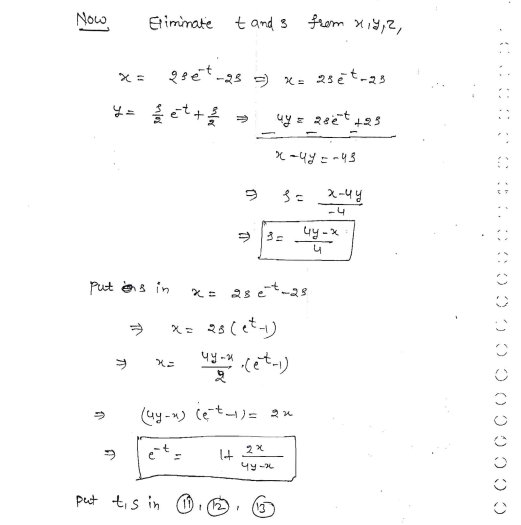 Now Eliminate t and s from x,y,z,
x = 2se^-t - 2s ⇒ x = 2se^-t - 2s
y = s/2 e^-t + s/2 ⇒ 4y = 2se^-t + 2s
x - 4y = -4s
⇒ s = (x-4y)/-4
⇒ s = (4y-x)/4
Put s in x = 2se^-t - 2s
⇒ x = 2s(e^-t - 1)
⇒ x = (4y-x)/2 . (e^-t - 1)
⇒ (4y-x)(e^-t - 1) = 2x
⇒ e^-t = 1 + 2x/(4y-x)
Put t,s in ⑪, ⑫, ⑬